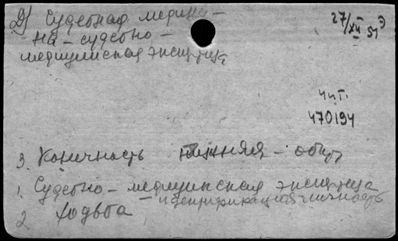 2) Судебная медици-
на - судебно -
медицинская экспертиза
27/XII 51
470194
3. Конечность нижняя -
1. Судебно - медицинская экспертиза
- идентификация личность
2. Ходьба